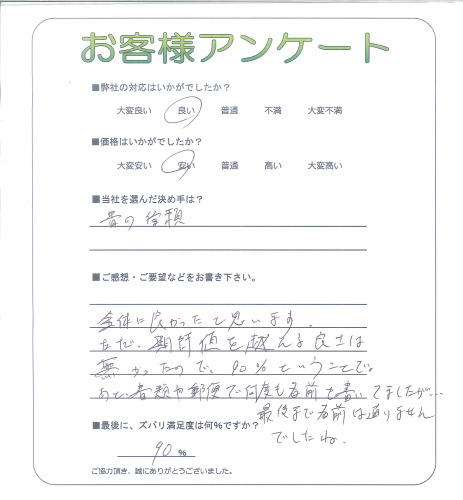 お客様アンケート
■弊社の対応はいかがでしたか？
大変良い 良い 普通 不満 大変不満
■価格はいかがでしたか？
大変安い 安い 普通 高い 大変高い
■当社を選んだ決め手は？
昔の信頼
■ご感想・ご要望などをお書き下さい。
全体に良かったと思います。
ただ、期待値を越える良さは
無かったので、90%ということで。
あと、書類や郵便で何度も名前を書いてましたが…
最後まで名前は通りません
でしたね。
■最後に、ズバリ満足度は何%ですか？
90 %
ご協力頂き、誠にありがとうございました。